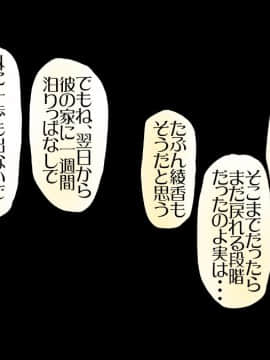 そこまでだったら
まだ戻れる段階
だったのよ実は・・・
たぶん綾香も
そうだと思う
でもね、翌日から
彼の家に一週間
泊りっぱなしで